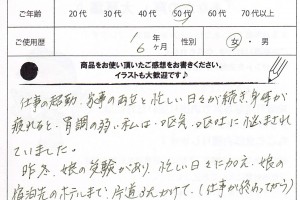 ご年齢 20代 30代 40代 50代 60代 70代以上
ご使用歴 1年6ヶ月 性別 女・男
商品をお使い頂いたご感想をお書きください。
イラストも大歓迎です♪
仕事の移動、家事の両立と忙しい日々が続き、身体が
疲れると、胃調の弱い私は、嘔気、嘔吐に悩まされ
ていました。
昨冬、娘の受験があり、忙しい日々に加え、娘の
宿泊先のホテルまで、片道 かけて、(仕事が終わってから)